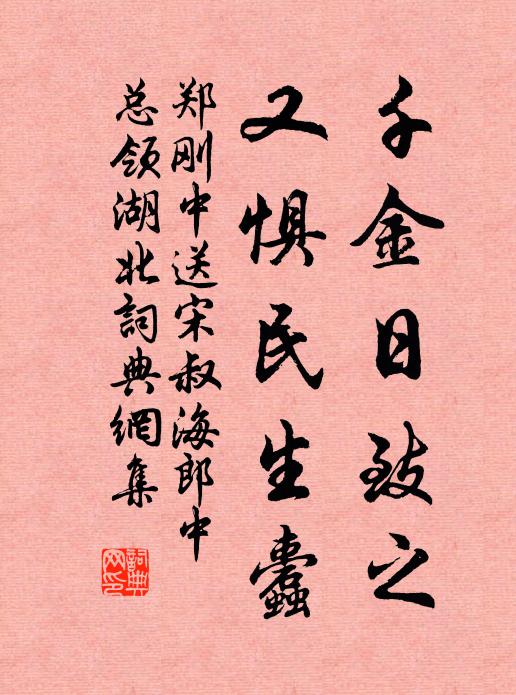 千金日致之
又惧民生蠹
郑刚中送宋叔海郎中
总领湖北詞典網集
詞典网印